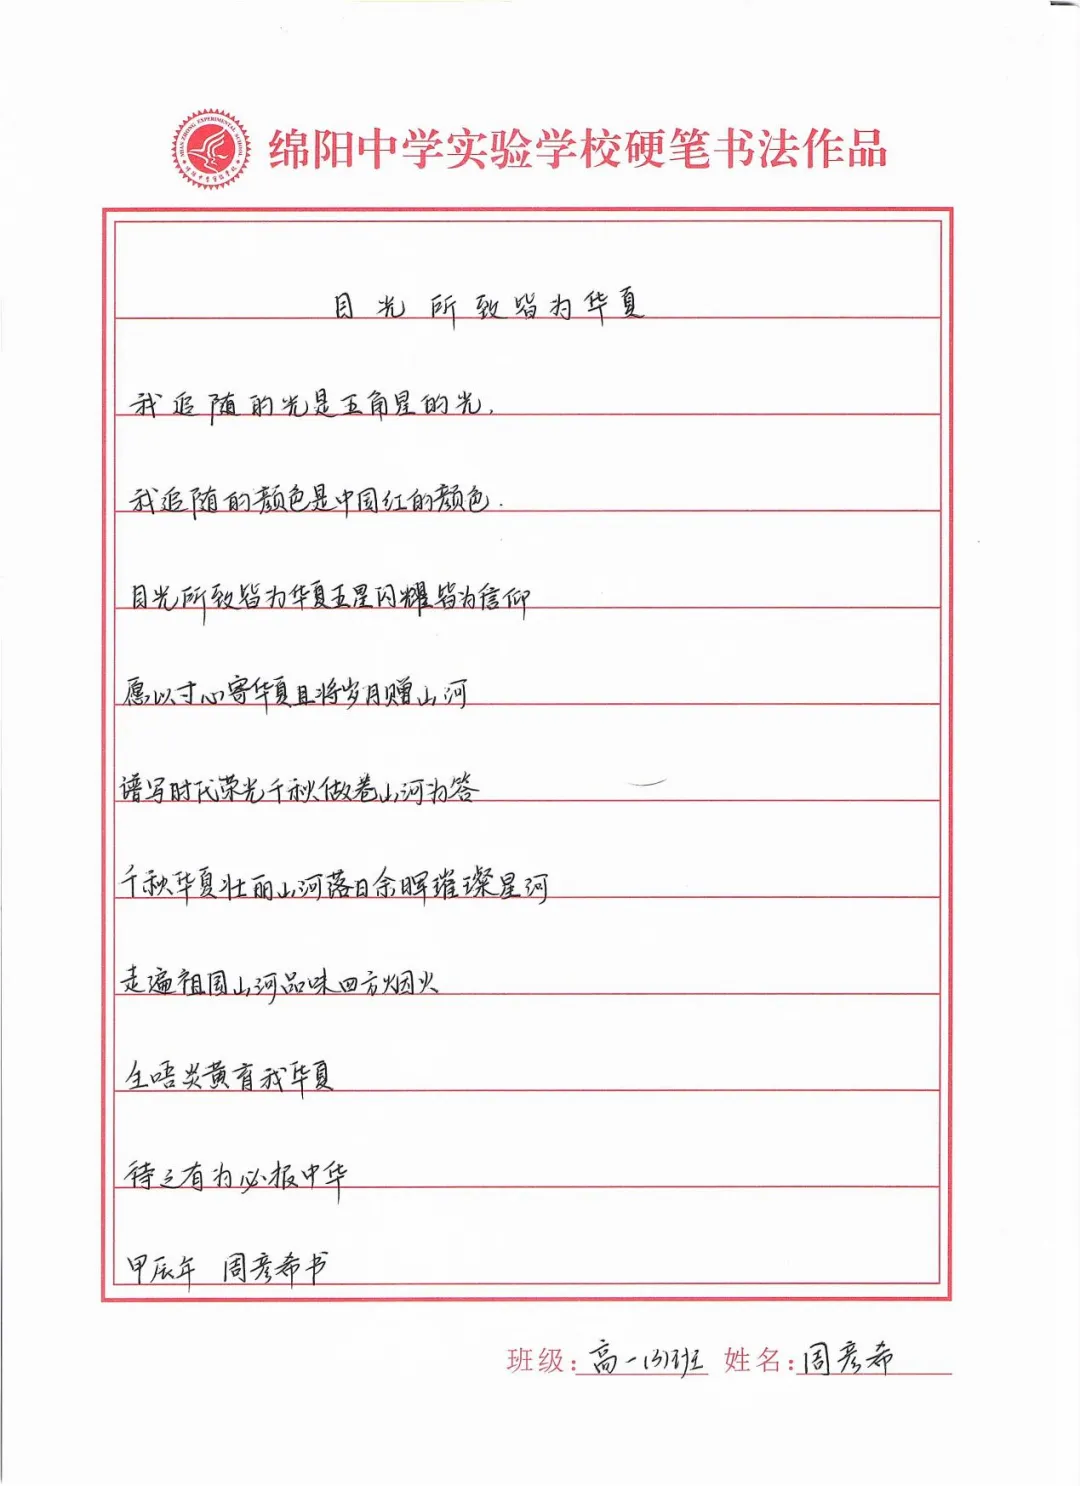 绵阳中学实验学校硬笔书法作品
目光所致皆为华夏
我追随的光是五角星的光.
我追随的颜色是中国红的颜色.
目光所致皆为华夏五星闪耀皆为信仰
愿以寸心寄华夏且将岁月赠山河
谱写时代荣光千秋做卷山河为答
千秋华夏壮丽山河落日余晖璀璨星河
走遍祖国山河品味四方烟火
生唔炎黄育我华夏
待之有为必报中华
甲辰年 周彦希书
班级:高一(3)班 姓名:周彦希